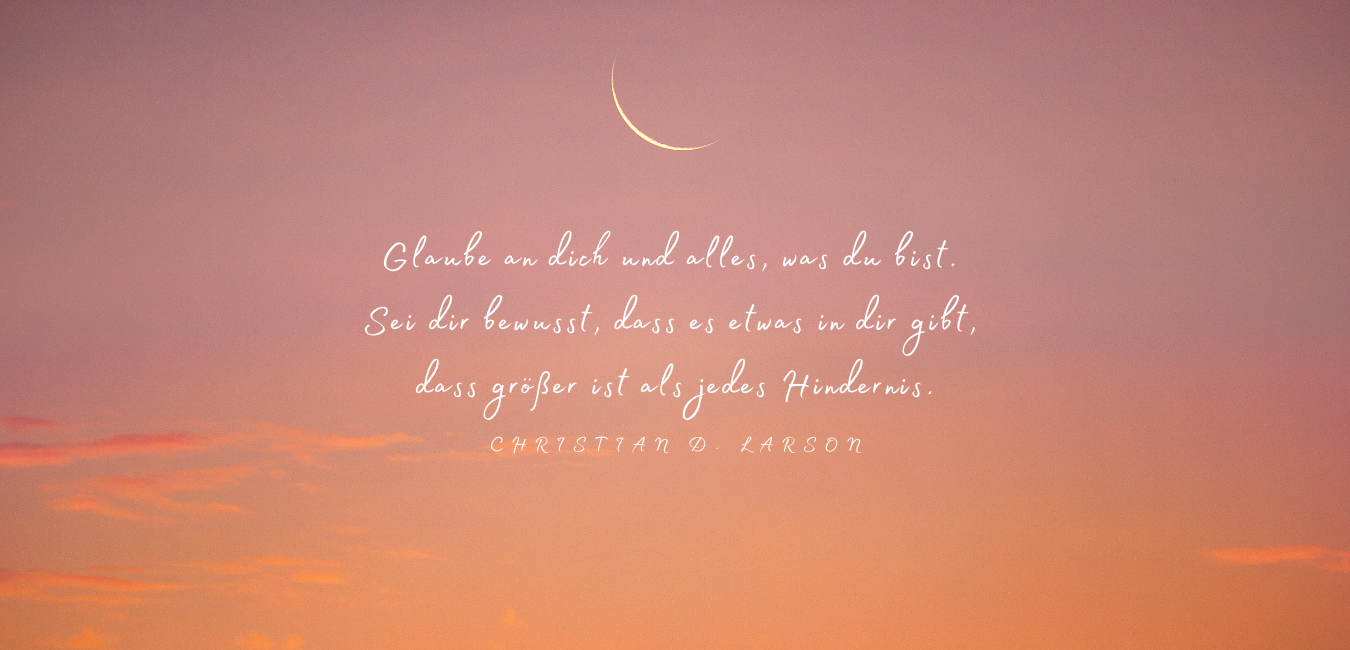 Glaube an dich und alles, was du bist.
Sei dir bewusst, dass es etwas in dir gibt,
dass größer ist als jedes Hindernis.
CHRISTIAN D. LARSON